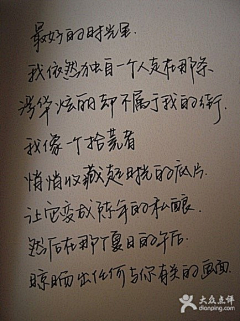 最好的时光里.
我依然独自一个人走在那条
繁华炫丽却不属于我的街,
我像一个拾荒者
悄悄收藏起时光的碎片.
让它变成陈年的私酿.
然后在那个夏日的午后.
晾晒出任何与你有关的画面.
大众点评
dianping.com